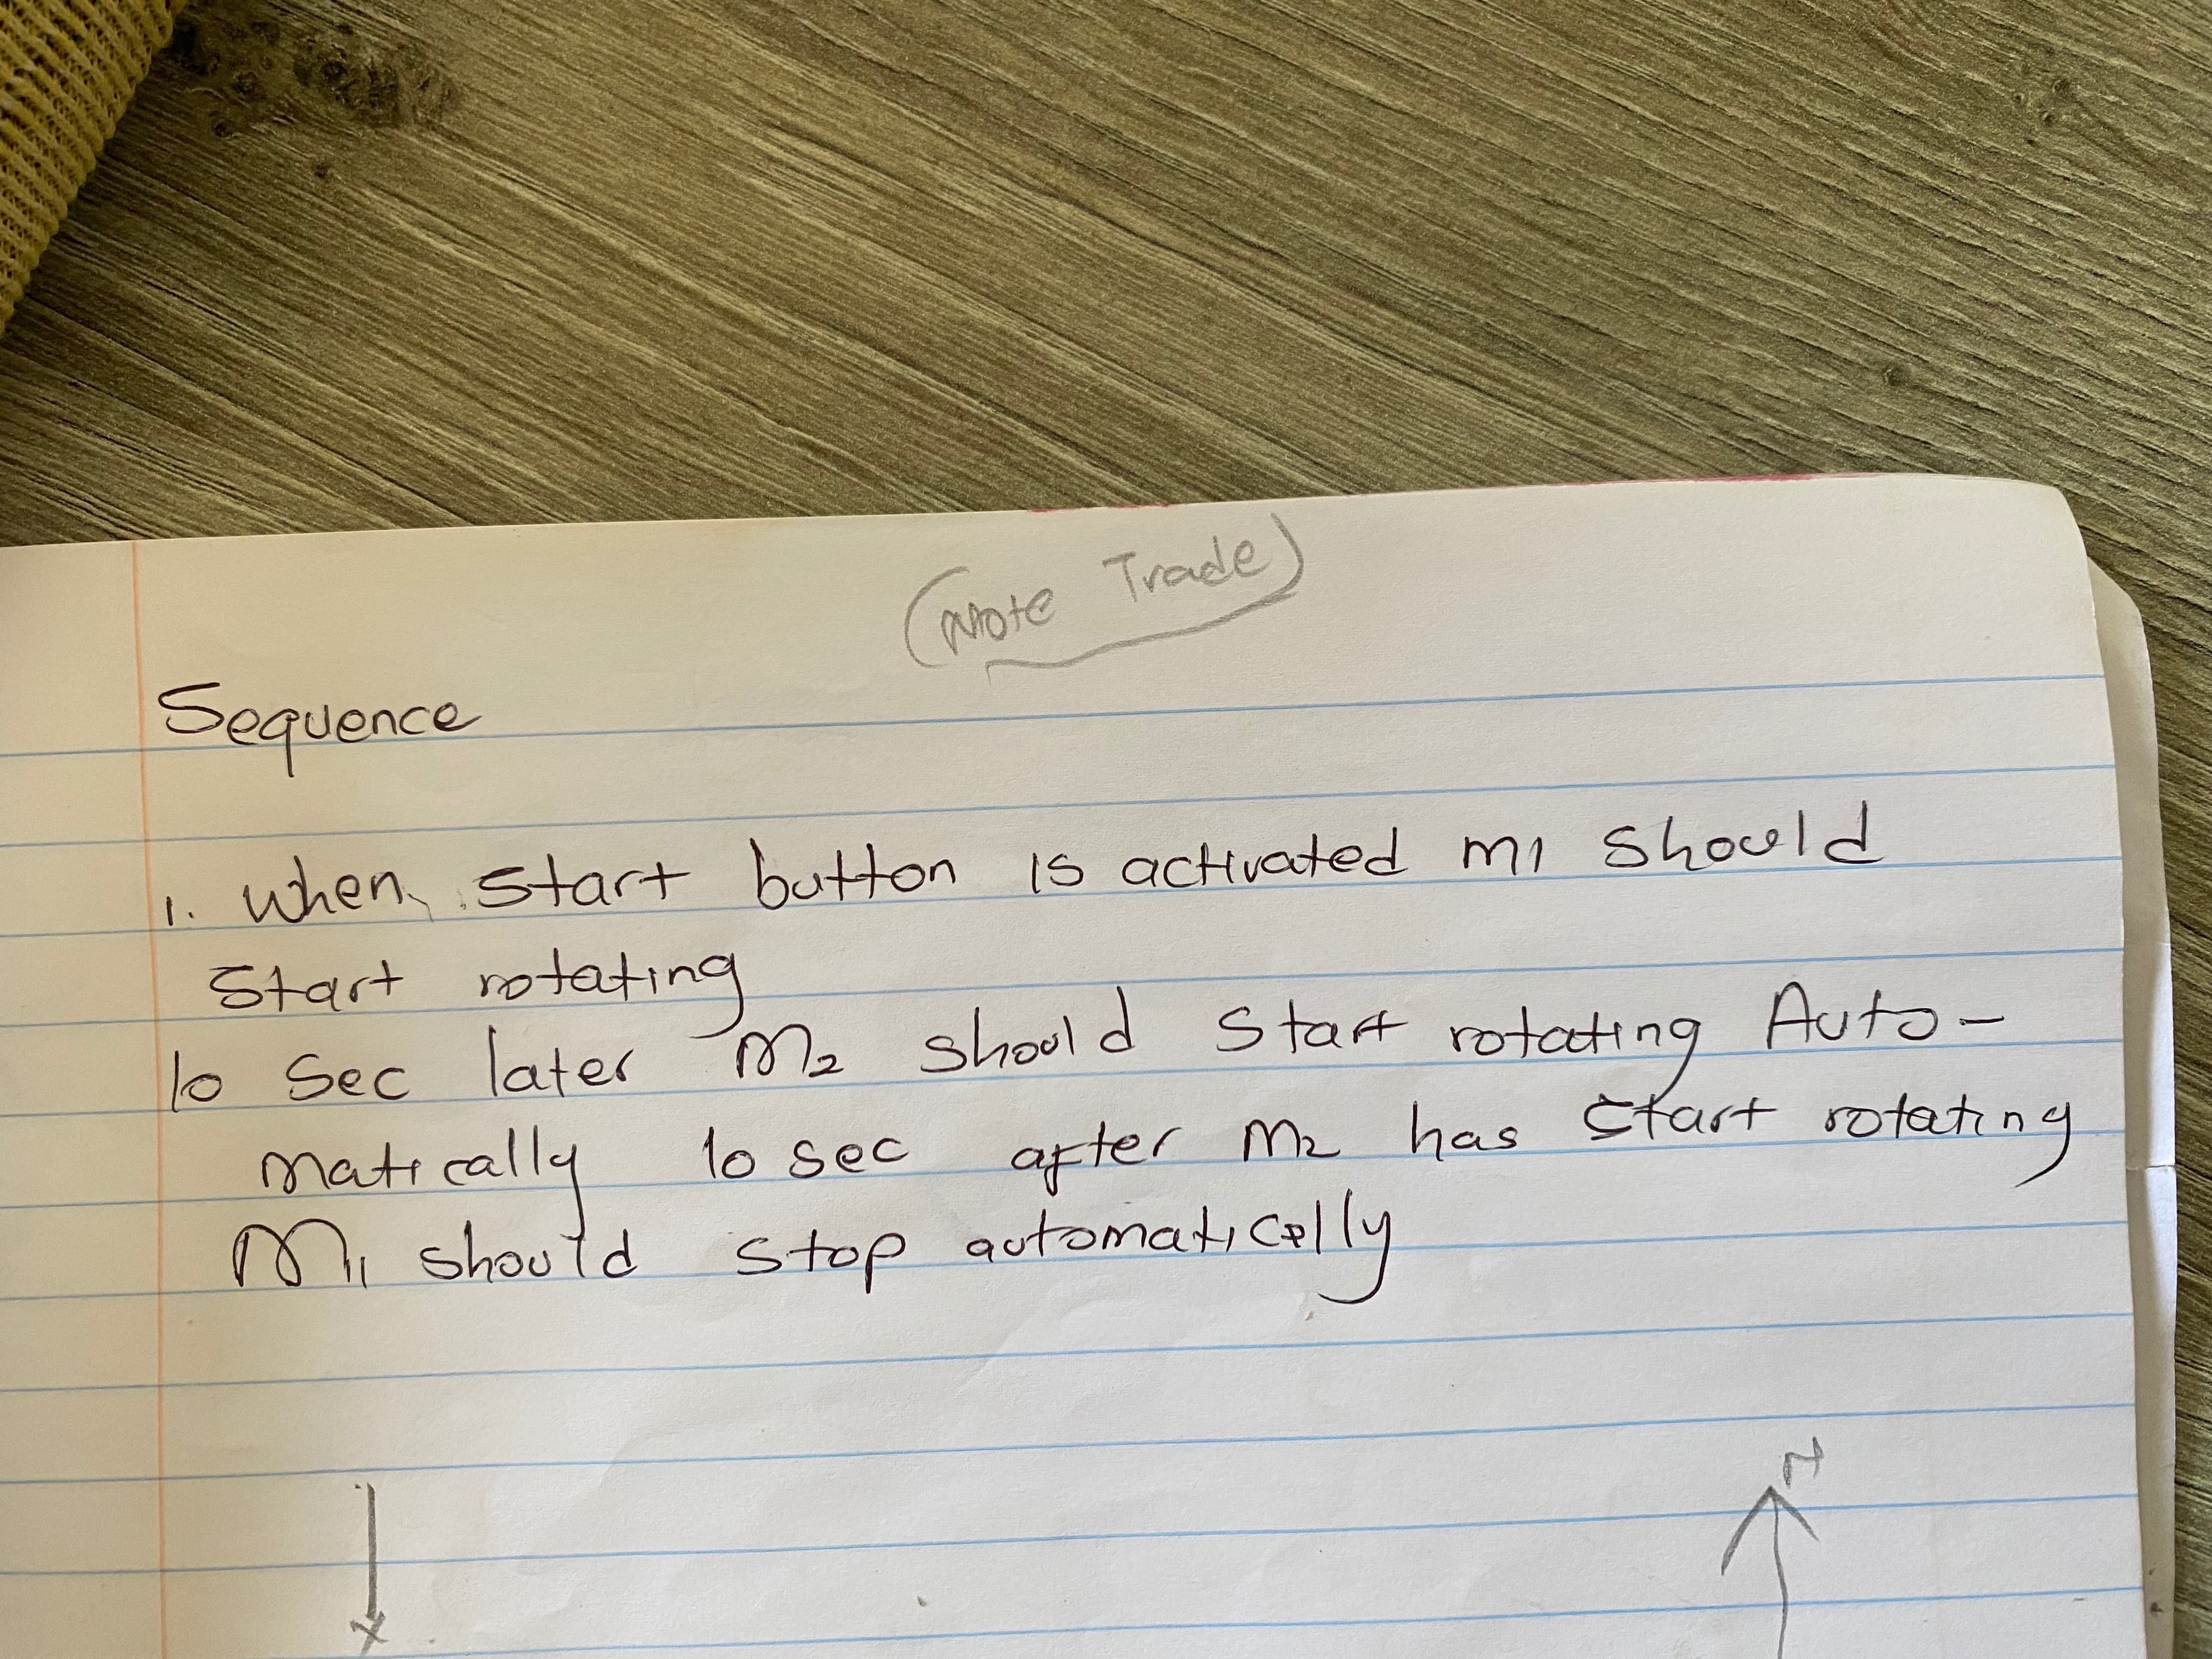 (Mote Trade)
Sequence
1. When start button is activated m1 should
start rotating
10 Sec later M2 should start rotating Auto-
matically 10 sec after M2 has start rotating
M1 should stop automatically
N
x